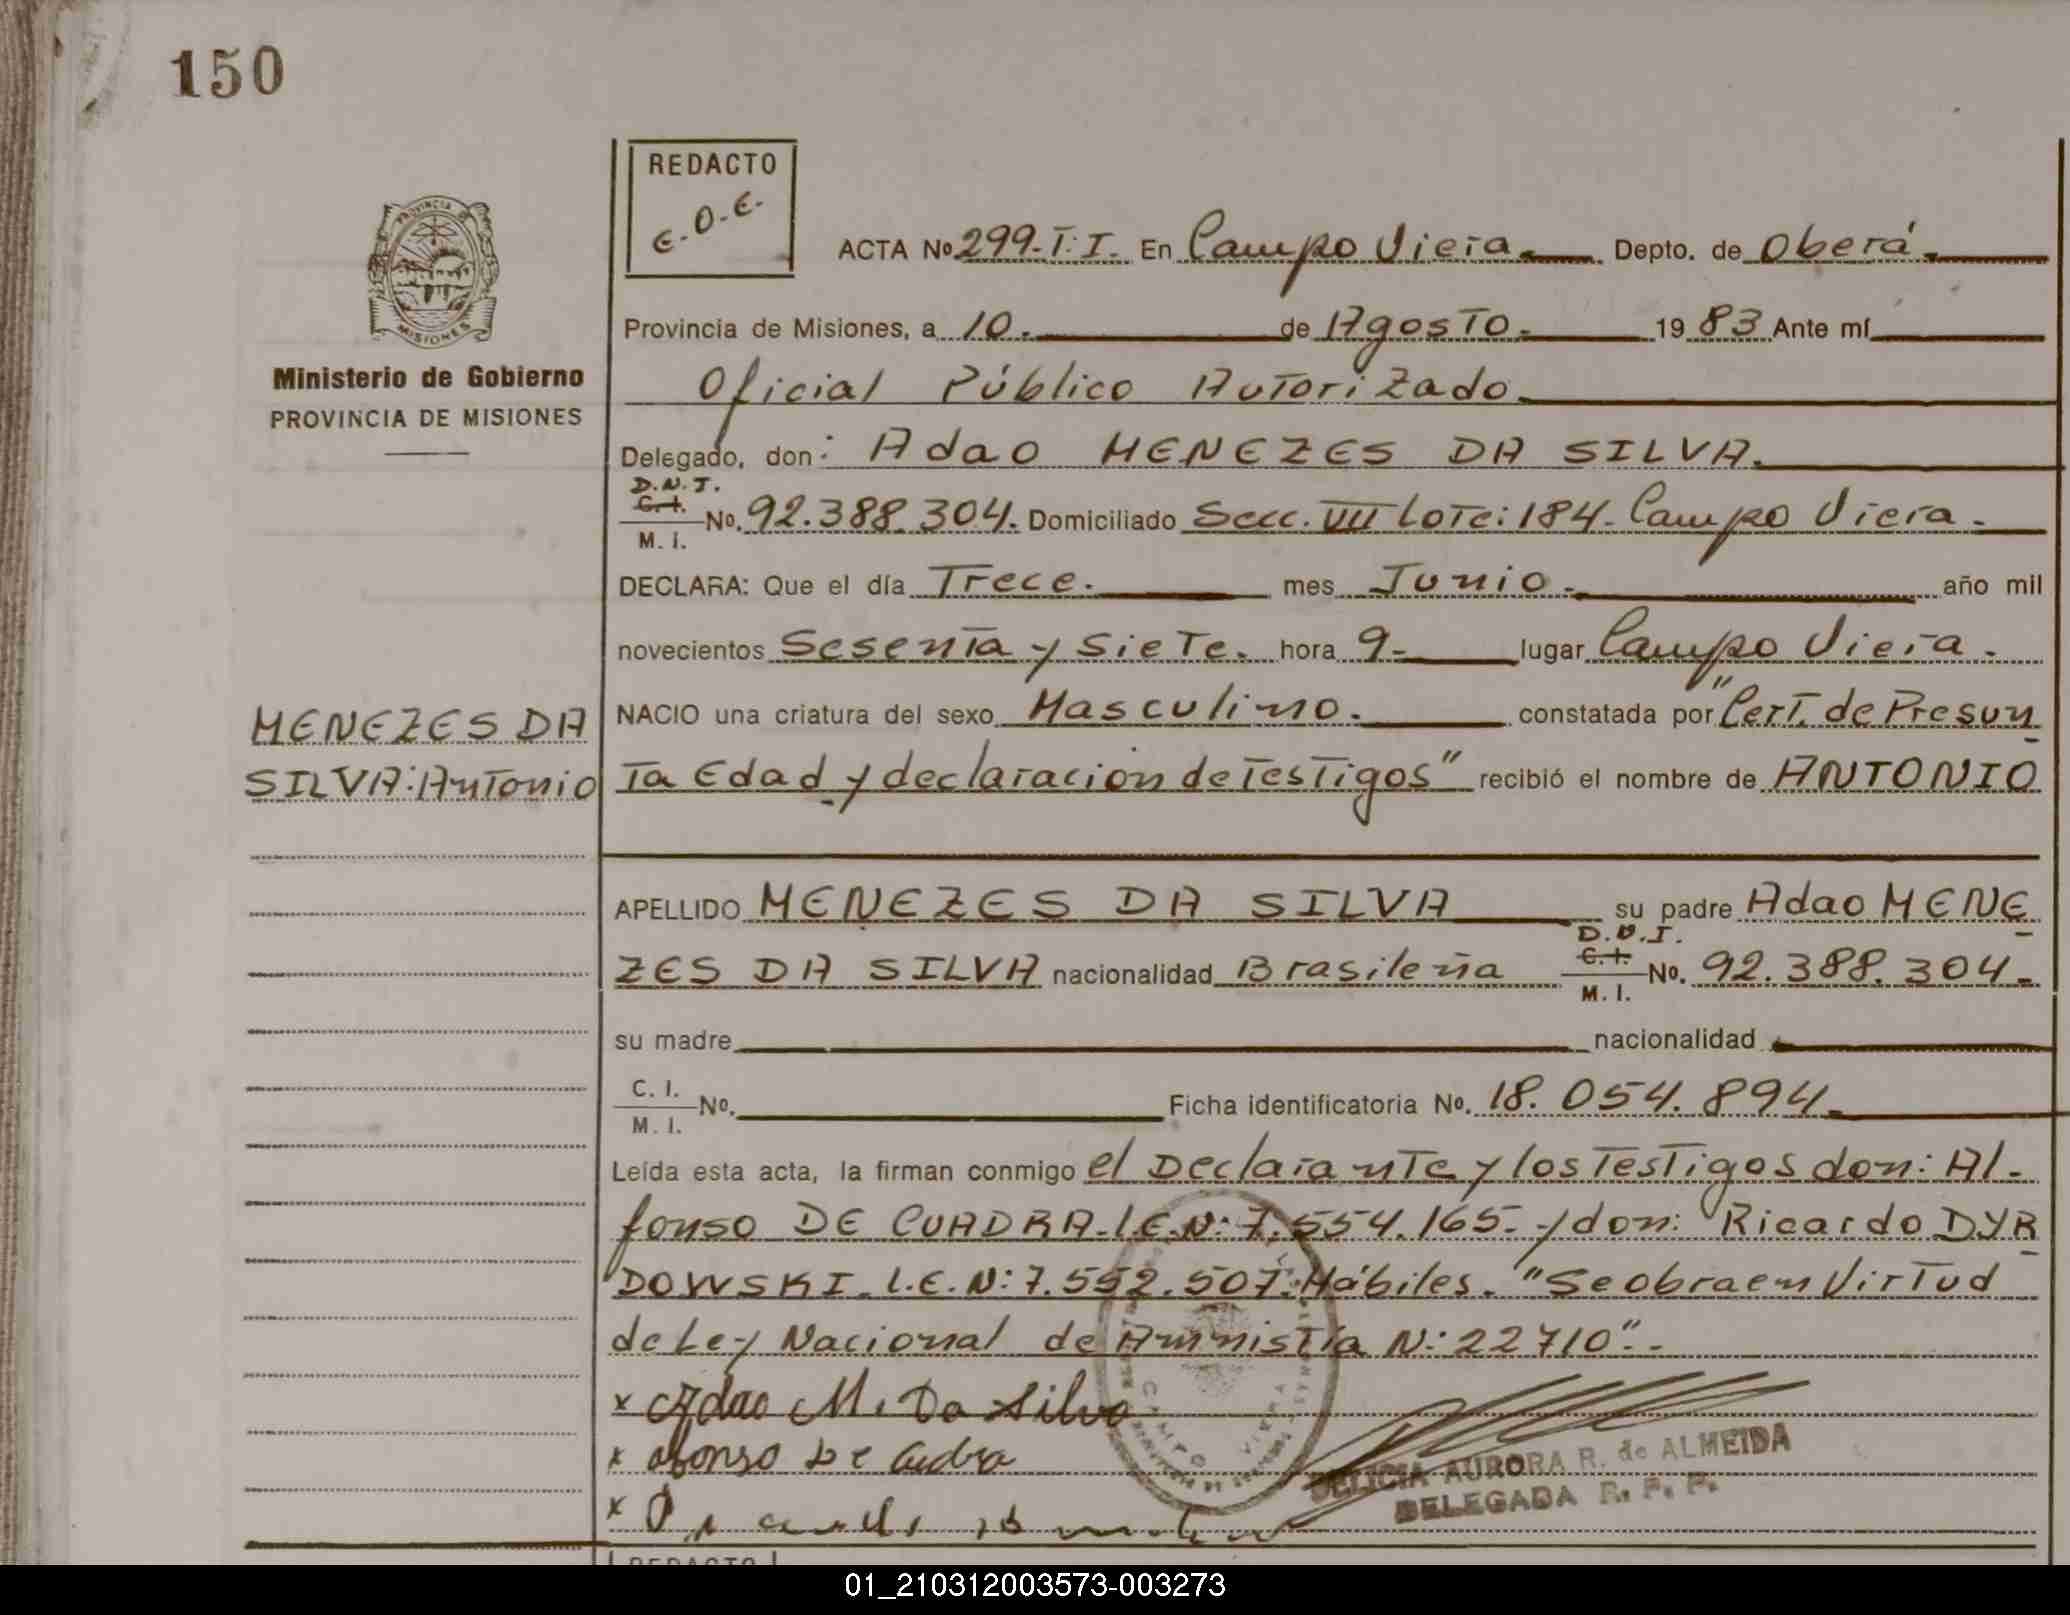 150
REDACTO
E.O.E.
ACTA No 299.T:I. En Campo Viera. Depto. de Oberá.
PROVINCIA DE
MISIONES
Provincia de Misiones, a 10. de Agosto. 19 83 Ante mí
Ministerio de Gobierno
PROVINCIA DE MISIONES
Oficial Público Autorizado.
Delegado, don: Adao MENEZES DA SILVA.
D.N.I.
C.I.
M. I. No. 92.388.304. Domiciliado Secc. VII Lote: 184. Campo Viera.
DECLARA: Que el día Trece. mes Junio. año mil
novecientos Sesenta y Siete. hora 9. lugar Campo Viera.
MENEZES DA
SILVA: Antonio
NACIO una criatura del sexo Masculino. constatada por "Cert. de Presun
ta Edad y declaracion de Testigos" recibió el nombre de ANTONIO
APELLIDO MENEZES DA SILVA su padre Adao MENE
D.N.I.
ZES DA SILVA nacionalidad Brasileña C.I. M. I. No. 92.388.304.
su madre nacionalidad
C. I.
M. I. No. Ficha identificatoria No. 18.054.894.
Leída esta acta, la firman conmigo el Declarante y los Testigos don: Al-
fonso DE CUADRA. L.E.N: 7.554.165.- y don: Ricardo DYR
DOWSKI. L.E.N: 7.552.507. Hábiles. "Se obra en Virtud
de Ley Nacional de Amnistía N: 22710".-
x Adao M. Da Silva
x afonso De Cudra
x
CAMPO VIERA
DELICIA AURORA R. de ALMEIDA
DELEGADA R. P. P.
REDACTO
01_210312003573-003273